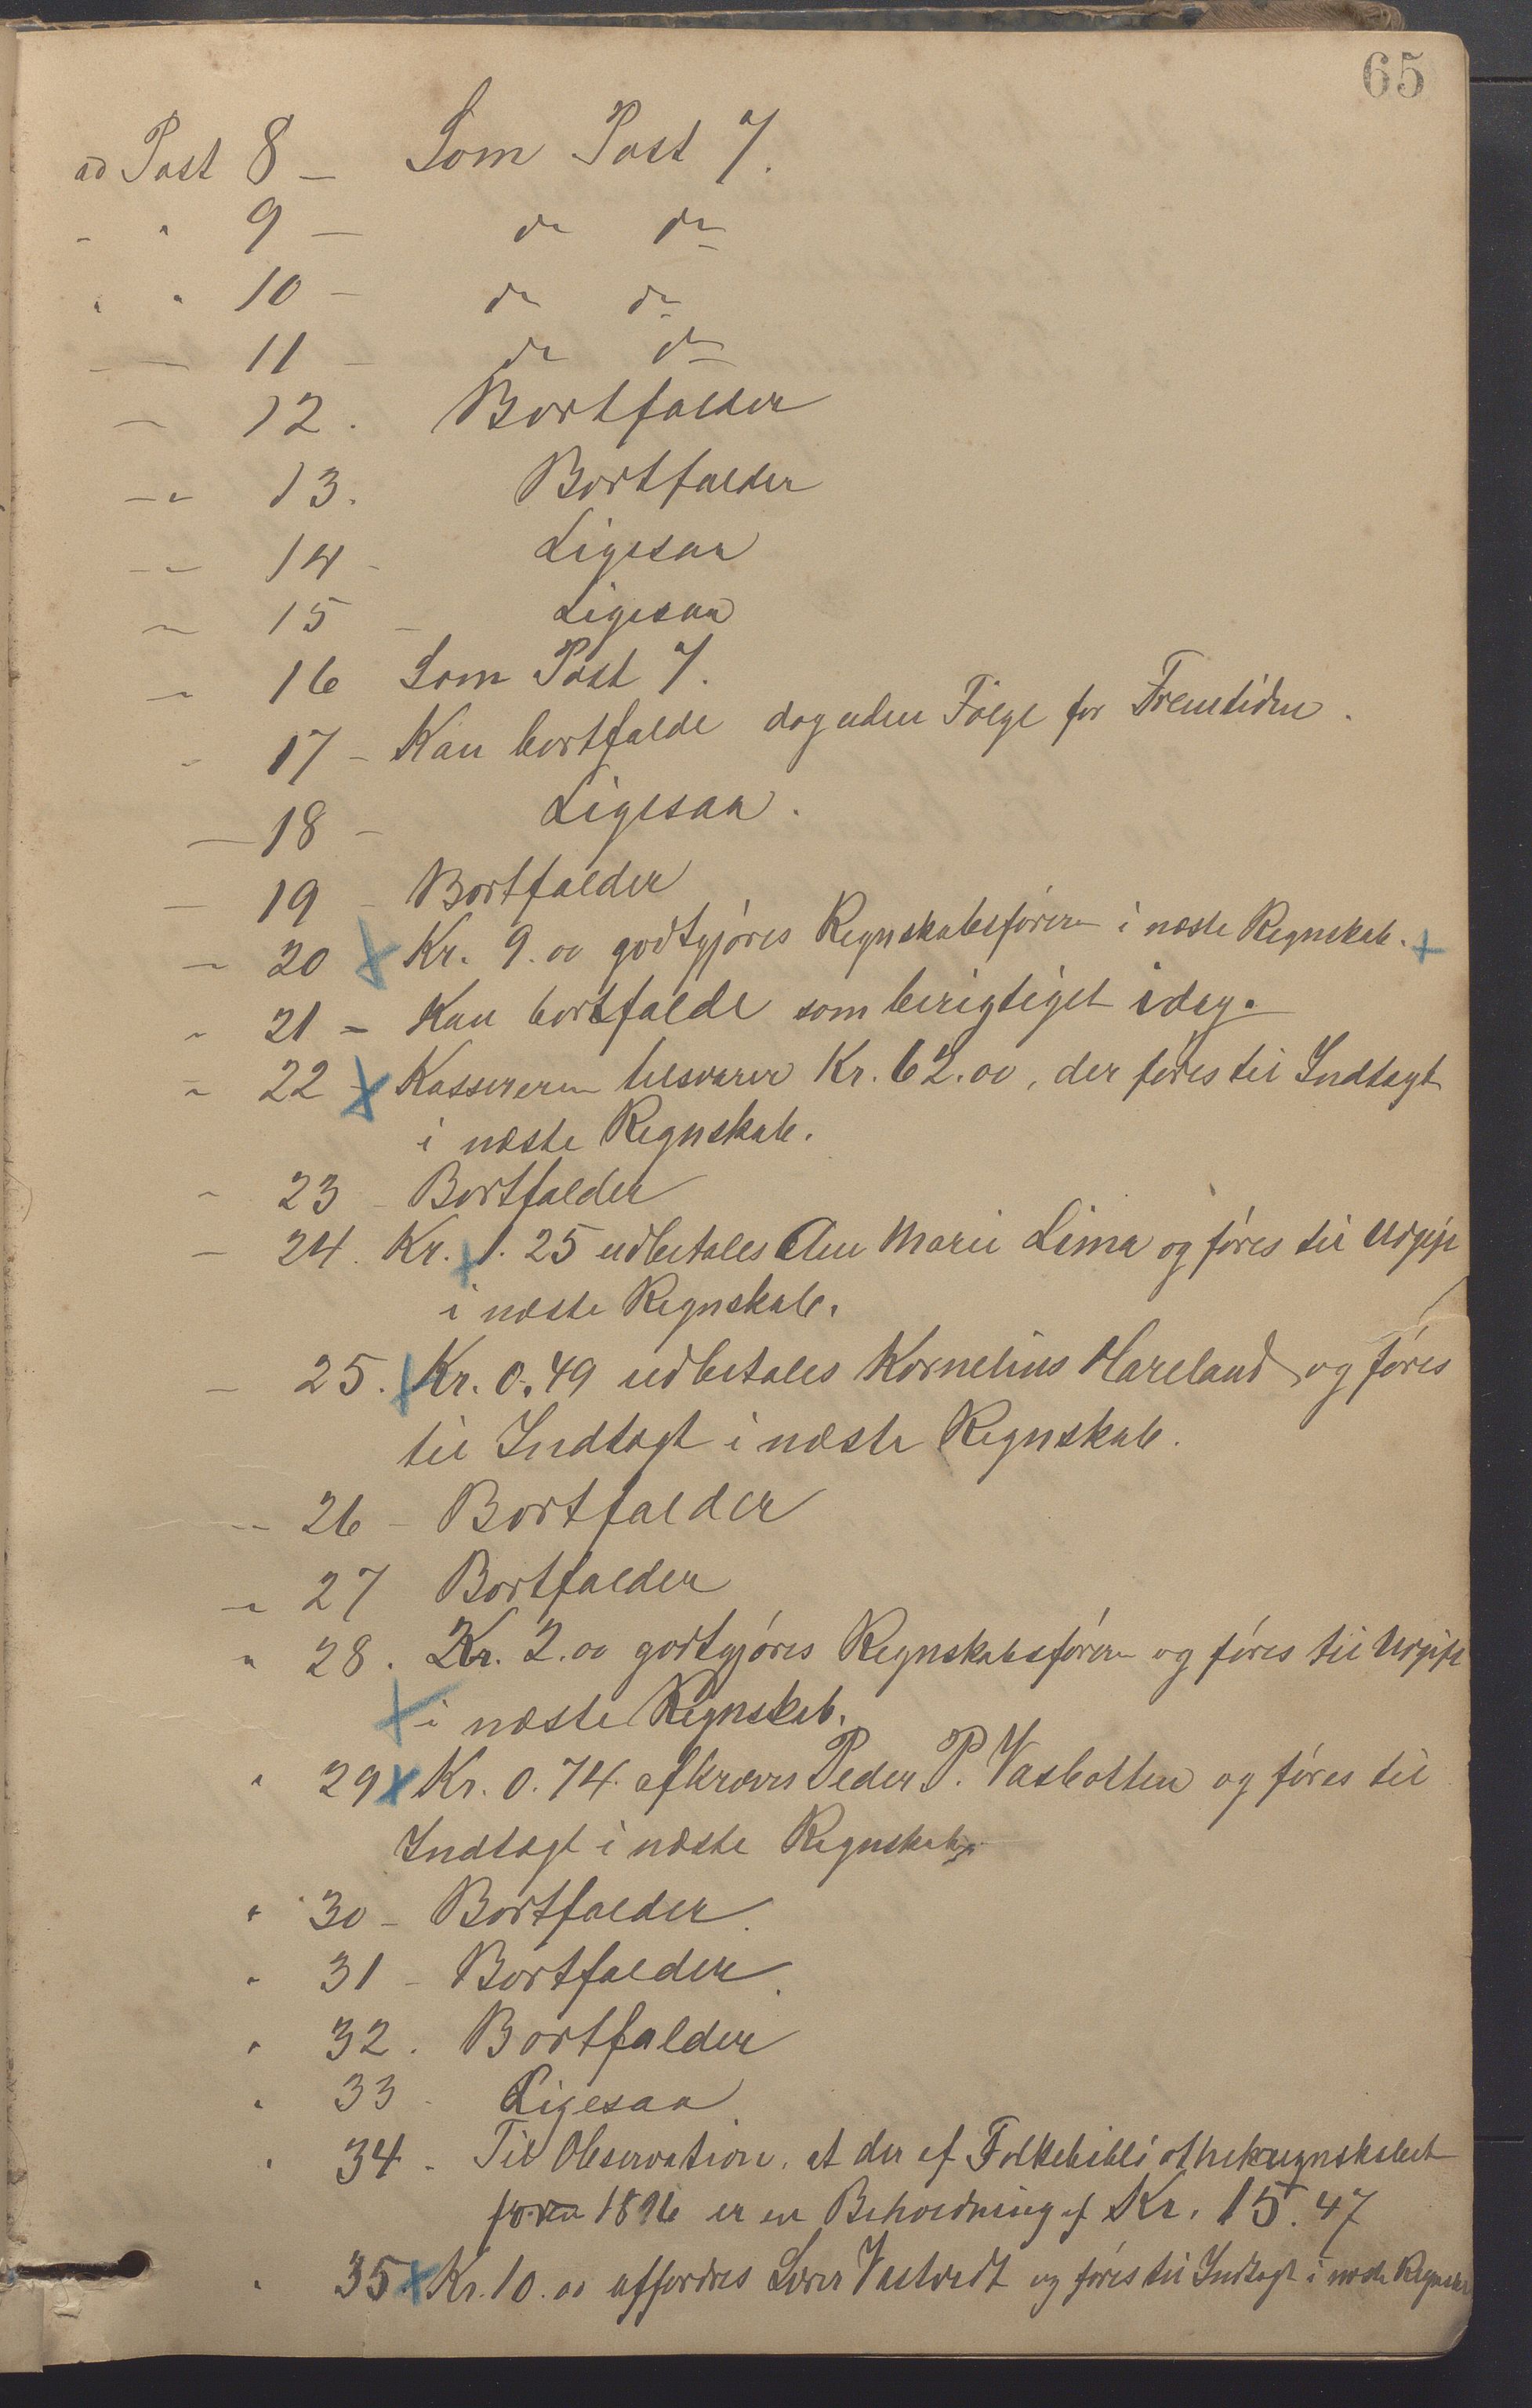 65
ad Post 8 – Som Post 7.
- " 9 – do do
" " 10 – do do
– – 11 – do do
– 12. Bortfalder
–"– 13. Bortfalder
–"– 14 - Ligesaa
– 15 – Ligesaa
– 16 Som Post 7.
- 17 – Kan bortfalde dog uden Følge for Fremtiden.
– 18 – Ligesaa.
– 19 – Bortfalder
– 20 x Kr. 9.00 godtgjøres Regnskabsføreren i næste Regnskab. x
" 21 – Kan bortfalde som berigtiget idag.
" 22 x Kassereren tilsvarer Kr. 62.00, der føres til Indtægt
i næste Regnskab.
" 23 – Bortfalder
– 24. Kr. x 1.25 udbetales Ane Marie Lima og føres til Udgift
i næste Regnskab.
– 25. x Kr. 0.49 udbetales Kornelius Hareland og føres
til Indtægt i næste Regnskab.
-- 26 – Bortfalder
–"– 27 Bortfalder
" 28. Kr. 2.00 godtgjøres Regnskabsføreren og føres til Udgift
x i næste Regnskab.
" 29 x Kr. 0.74. afkræves Peder P. Vasbotten og føres til
Indtægt i næste Regnskab.
" 30 – Bortfalder.
" 31 – Bortfalder.
" 32. Bortfalder
" 33 - Ligesaa.
" 34 - Til Observation, at der af Folkebibliothekregnskabet
for 1896 er en Beholdning af Kr. 15.47
" 35 x Kr. 10.00 affordres Lærer Vastvedt og føres til Indtægt i næste Regnskab